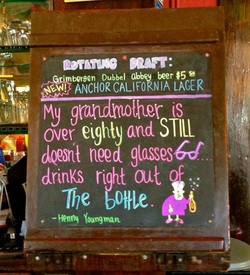 ROTATING DRAFT:
Grimbergen Dubbel Abbey beer $5.50
NEW! ANCHOR CALIFORNIA LAGER
My grandmother is
over eighty and STILL
doesn't need glasses
drinks right out of
The bottle.
- Henny Youngman